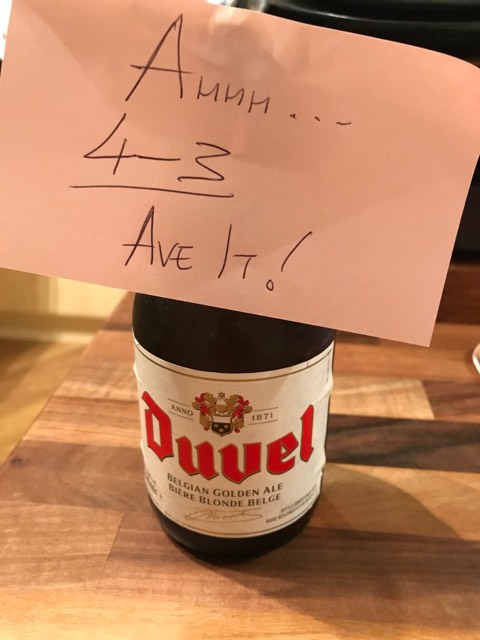 AHHH...
4-3
AVE IT!
ANNO 1871
Duvel
BELGIAN GOLDEN ALE
BIÈRE BLONDE BELGE